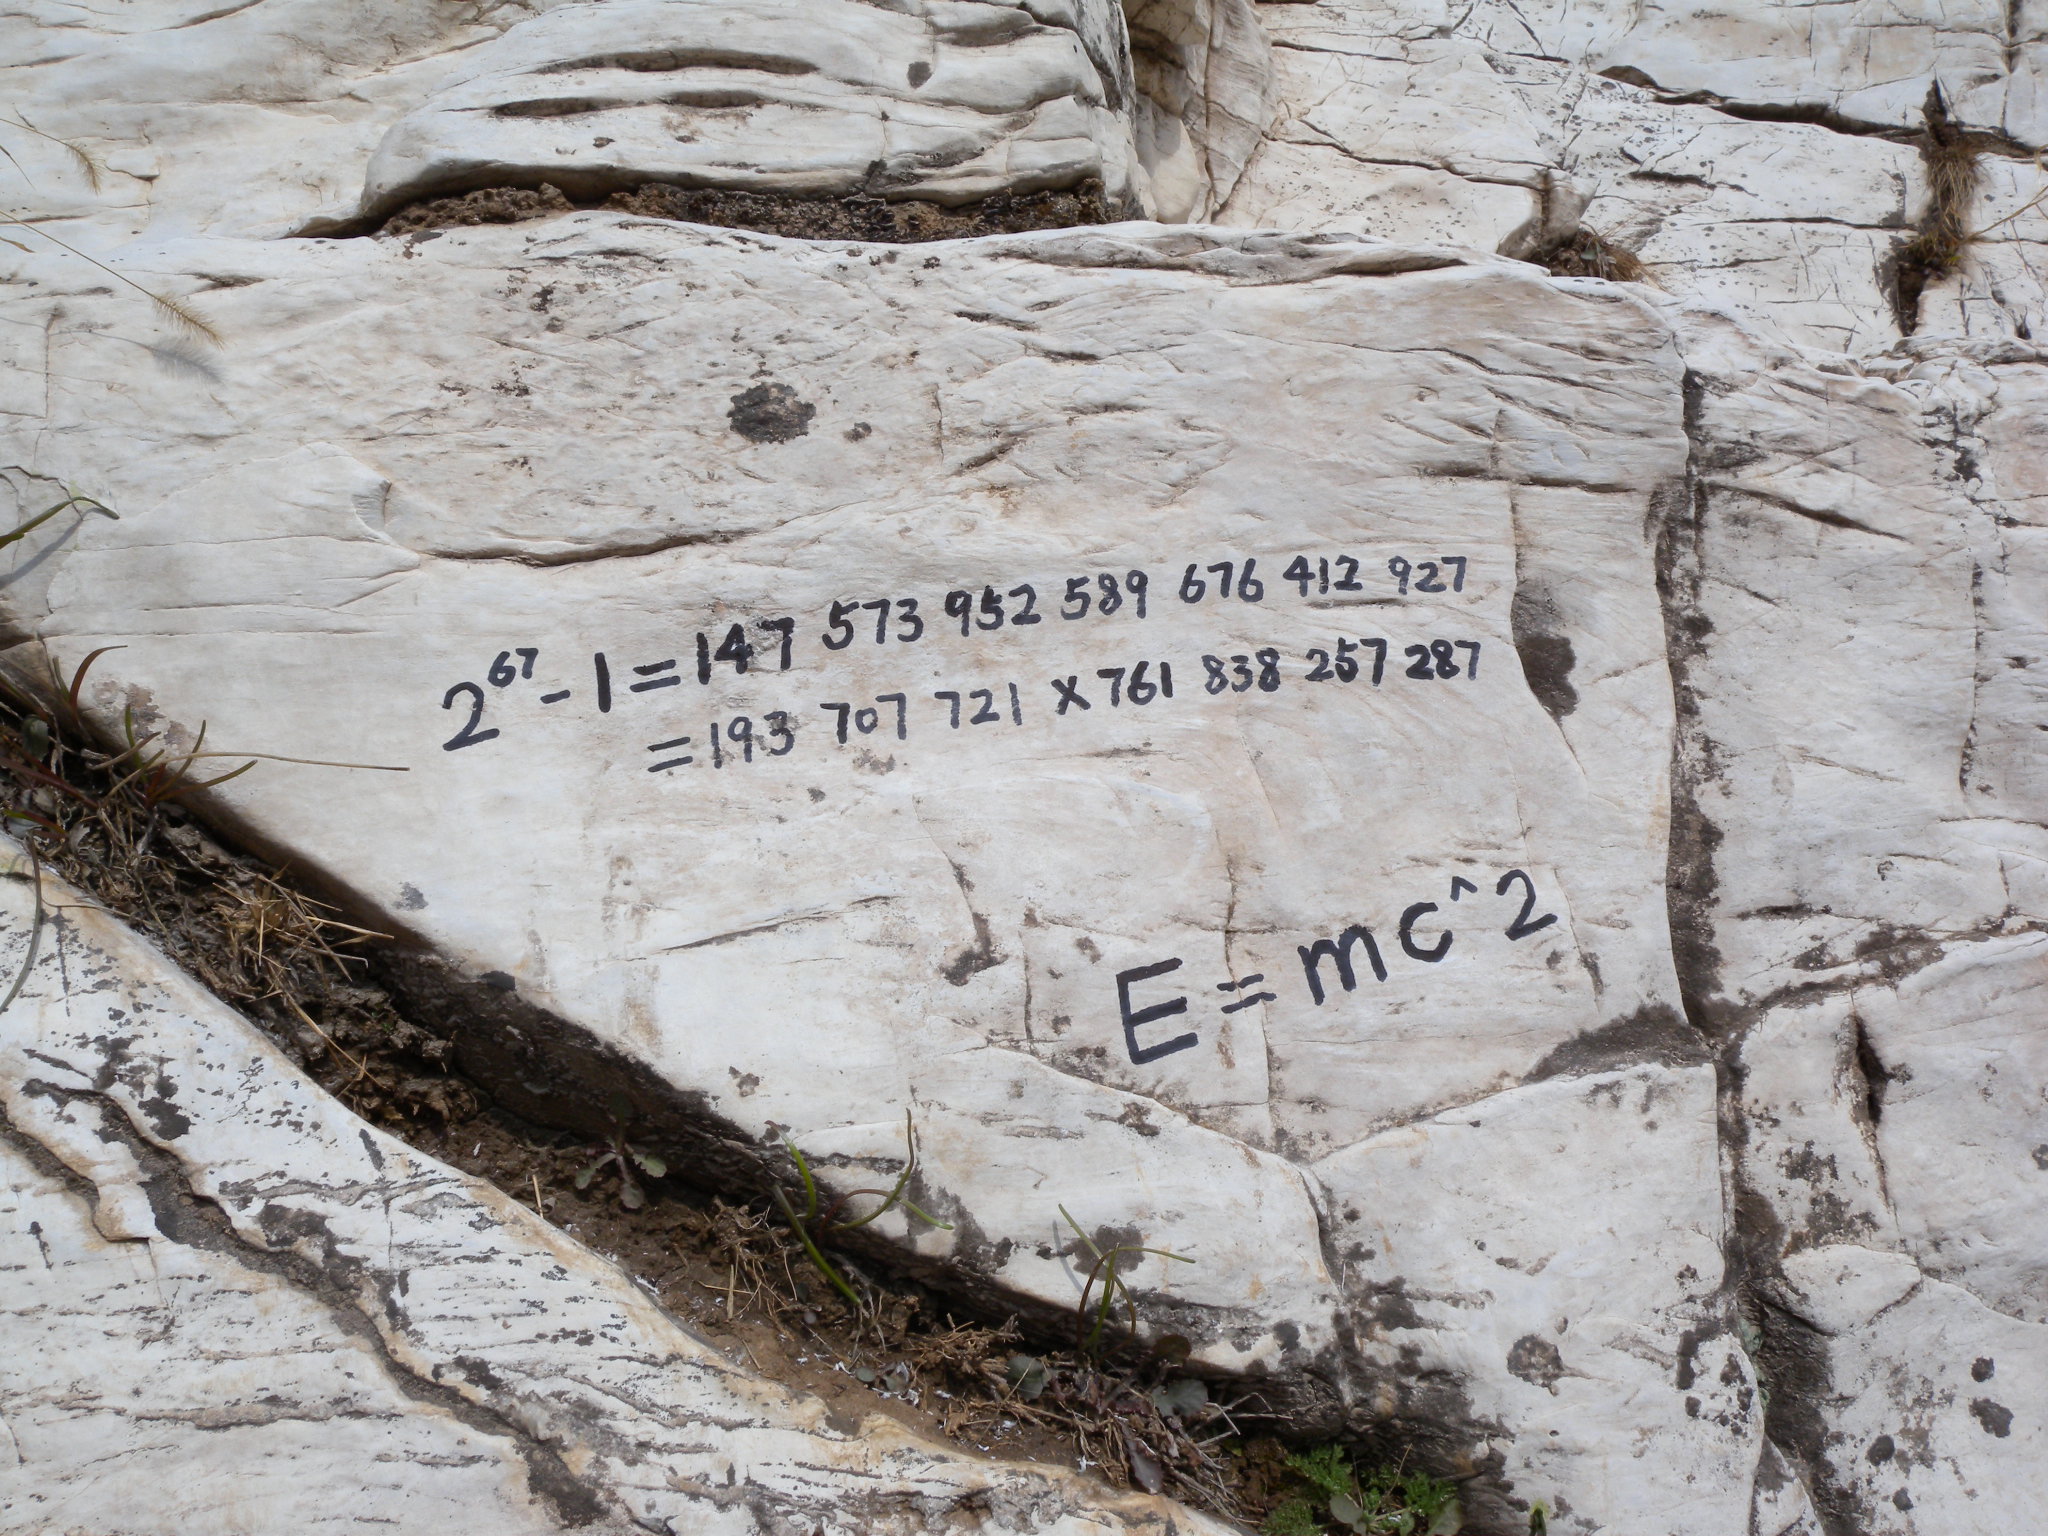 2^67 - 1 = 147 573 952 589 676 412 927
= 193 707 721 x 761 838 257 287
E = mc^2